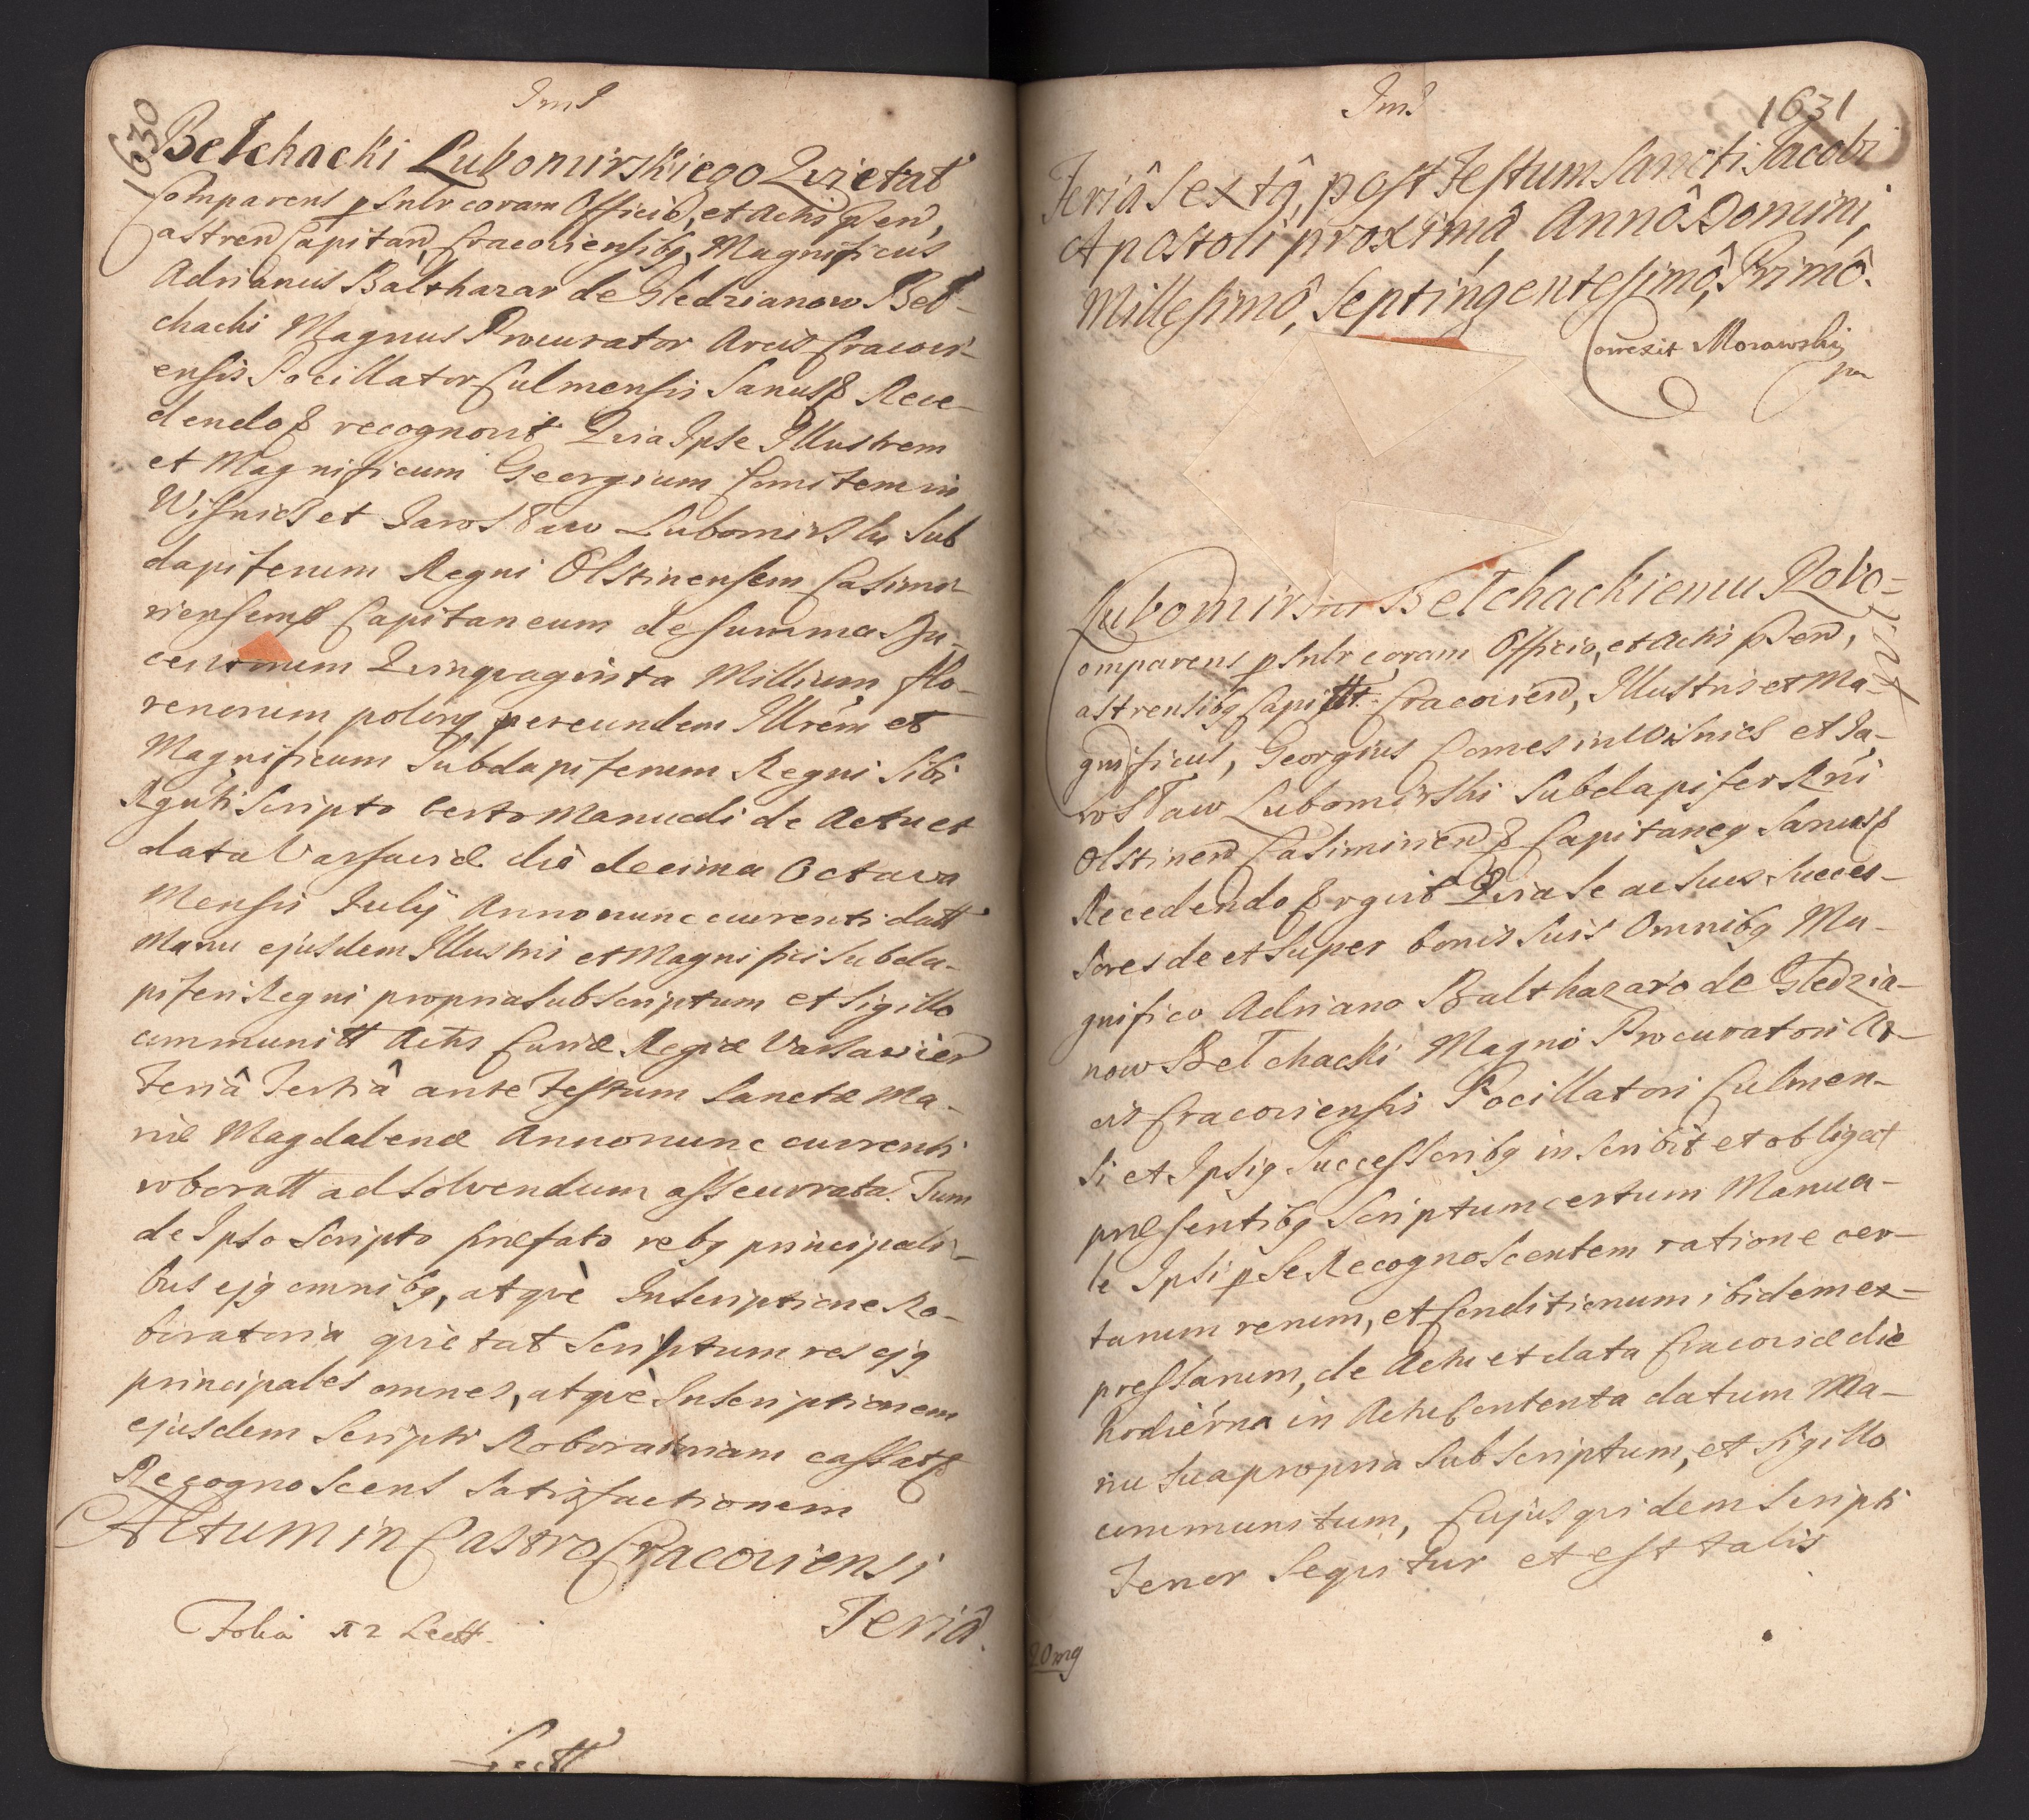 Jms
1630
Bełchacki Lubomirskiego Qvietat
Comparens psnlr coram Officio, et Actis psen,
Castren Capitan, Cracoviensibq, Magnificus
Adrianus Balthazar de Gledzianow Beł-
chacki Magnus Procurator Arcis Cracovi-
ensis Pocillator Culmensis Sanus & Rece-
dendo & recognovit Qvia Ipse Illustrem
et Magnificum Georgium Comitem in
Wisnicz et Jarosław Lubomirski Sub
dapiferum Regni Olstinensem Casimi-
riensemq Capitaneum de summa Du-
centorum Qvinqvaginta Millium flo-
renorum polonq per eundem Illrem et
Magnificum Subdapiferum Regni Sibi
Rgnti Scripto Certo Manuali de Actu et
data Varsaviæ die decima Octava
Mensis Julÿ Anno nunc currenti datt
Manu ejusdem Illustris et Magnifici Subda-
piferi Regni propria Subscriptum et Sigillo
communitt Actis Curiæ Regiæ Varsavien
Feriâ Tertiâ ante Festum Sanctæ Ma-
riæ Magdalenæ Anno nunc currenti
roboratt ad solvendum assecurata. Tum
de Ipso Scripto præfato rebq principali-
bus ejq omnibq, atqvè Inscriptione Ro-
boratoria qvietat Scriptum res ejq
principales omnes, atqvè Inscriptionem
ejusdem Scripti Roboratoriam cassat &
Recognoscens Satisfactionem
Actum in Castro Cracoviensi
Folia Lectt.
Feriâ
Lectt
Jms
1631
Feriâ Sextâ, post Festum Sancti Jacobi
Apostoli proximâ, Annô Domini,
Millesimô, Septingentesimô, Primô.
Correxit Morawski
mp
Lubomirski Bełchackiemu Robo-
rat
Comparens psnlr coram Officio, et Actis psen,
Castrensibq Capittt. Cracovien, Illustris et Ma-
gnificus, Georgius Comes in Wisnicz et Ja-
rosław Lubomirski Subdapifer Rni
Olstinen Casimirien & Capitaneq Sanus &
Recedendo & rgvit Qvia Se ac Suos Succes-
sores de et Super bonis Suis Omnibq Ma-
gnifico Adriano Balthazaro de Gledzia-
now Bełchacki Magno Procuratori Ar-
cis Cracoviensis Pocillatori Culmen-
si et Ipsiq Successoribq inscribit et obligat
præsentibq Scriptum certum Manua-
le Ipsi p Se Recognoscentem ratione cer-
tarum rerum, et Conditionum ibidem ex-
pressarum, de Actu et data Cracoviæ die
hodierna in Actu Contenta datum Ma-
nu Sua propria Subscriptum, et Sigillo
communitum, Cujus qvidem Scripti
Tenor Seqvitur et est talis
20 mg